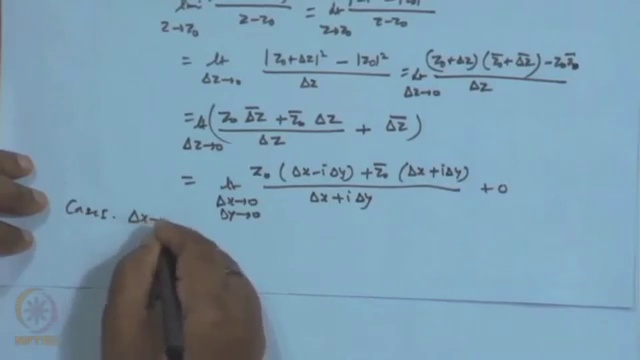 lim z→z₀ / z-z₀ = lt z→z₀ / z-z₀
= lt Δz→0 |z₀+Δz|² - |z₀|² / Δz = lt Δz→0 (z₀+Δz)(z̄₀+Δz̄) - z₀z̄₀ / Δz
= lt Δz→0 ( z₀ Δz̄ + z̄₀ Δz / Δz + Δz̄ )
= lt Δx→0 Δy→0 z₀ (Δx-iΔy) + z̄₀ (Δx+iΔy) / Δx+iΔy + 0
Case I. Δx→
NPTEL